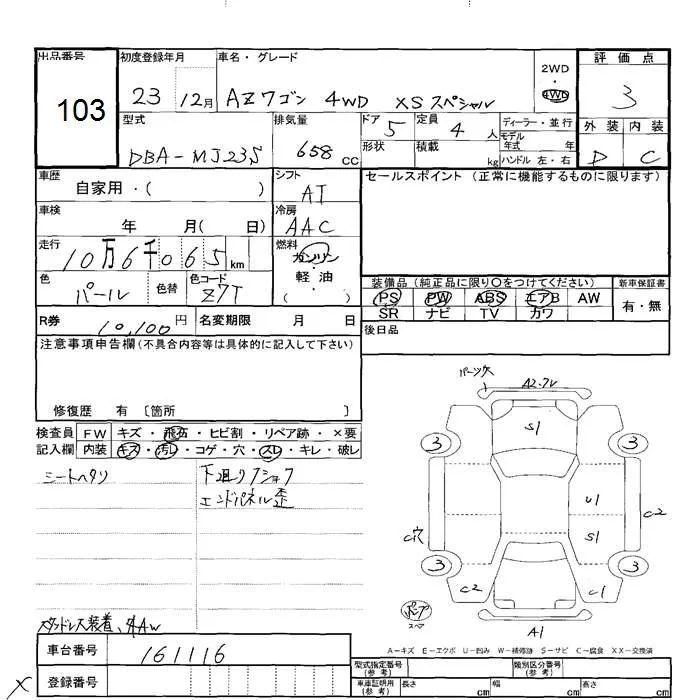 出品番号 初度登録年月 車名・グレード 2WD 評価点
103 23 12月 AZワゴン 4WD XSスペシャル 4WD 3
型式 排気量 ドア 5 定員 4 人 ディーラー・並行 外装 内装
モデル年式 年
DBA-MJ23S 658 CC 形状 積載 kg ハンドル 左・右 D C
車歴 シフト セールスポイント (正常に機能するものに限ります)
自家用・( ) AT
車検 冷房
年 月( 日) AAC
走行 燃料
10万6千065 km ガソリン
軽油 装備品 (純正品に限り○をつけてください) 新車保証書
色 色替 色コード ( )
パール Z7T PS PW ABS エアB AW 有・無
SR ナビ TV カワ
R券 10,100円 名変期限 月 日 後日品
注意事項申告欄(不具合内容等は具体的に記入して下さい)
修復歴 有 〔箇所 〕
検査員 FW キズ・飛石・ヒビ割・リペア跡・×要
記入欄 内装 キズ・汚レ・コゲ・穴・スレ・キレ・破レ
シートヘタリ 下廻リ
エンドパネル歪
パーツ欠 A2.
S1
3 3
U1
C穴 S1 C2
3 3
C2 C1
A1
A-キズ E-エクボ U-凹み W-補修跡 S-サビ C-腐食 XX-交換済
スタッドレス装着、
車台番号 161116
登録番号
型式指定番号 (参考) 類別区分番号 (参考)
車庫証明用 (参考) 長さ cm 幅 cm 高さ cm
X